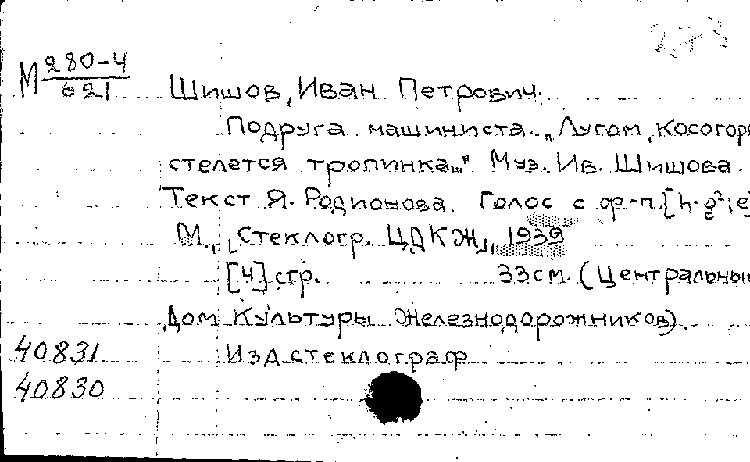 М 280-4
621
Шишов, Иван Петрович.
Подруга машиниста. „Лугом, косогор
стелется тропинка..." Муз. Ив. Шишова.
Текст Я. Родионова. Голос с ф-п. [h-g²; e
М., [Стеклогр. ЦДКЖ], 1939
[4] стр. 33 см. (Центральны
Дом Культуры Железнодорожников)
40831 Изд. стеклограф
40830